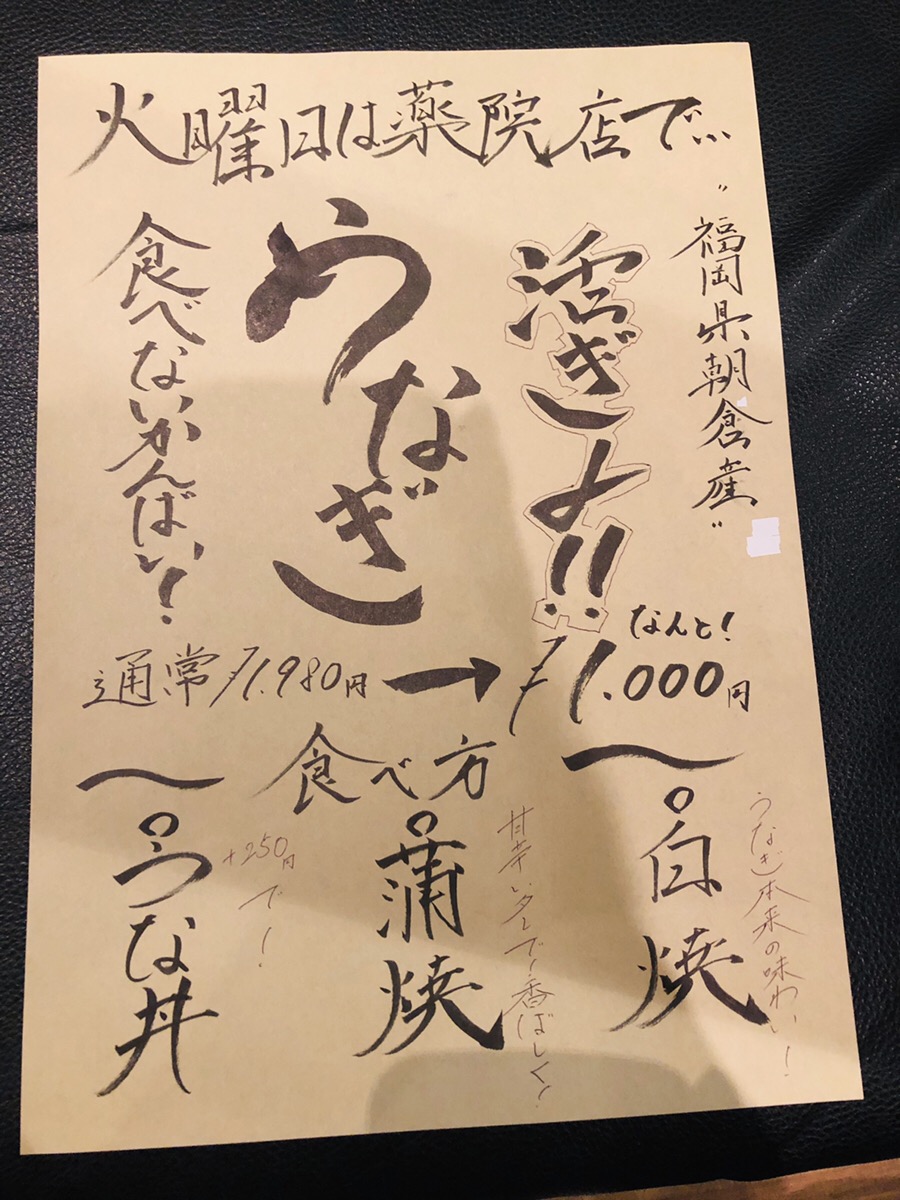 火曜日は薬院店で…
"福岡県朝倉産"
活ぎよ!!
うなぎ
食べないかんばい!
なんと!
通常1.980円→1.000円
〜食べ方〜
白焼
うなぎ本来の味わい!
蒲焼
甘辛いタレで!香ばしく!
うな丼
+250円で!